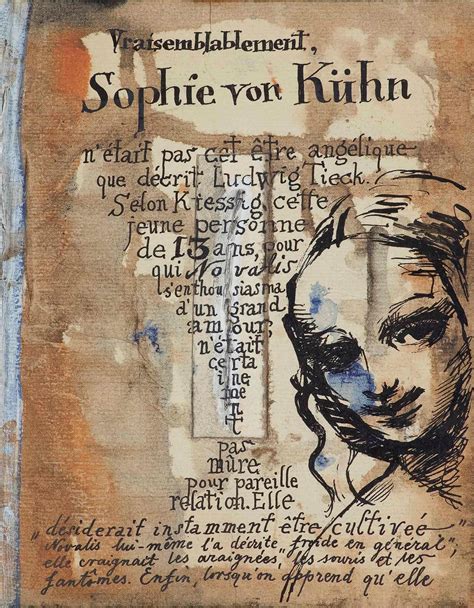 Vraisemblablement,
Sophie von Kühn
n'était pas cet être angélique
que décrit Ludwig Tieck.
Selon Kiessig, cette
jeune personne
de 13 ans, pour
qui Novalis
s'enthousiasma
d'un grand
amour,
n'était
certa
ine
me
nt
pas
mûre
pour pareille
relation. Elle
„désiderait instamment être cultivée"
Novalis lui-même l'a décrite „froide en général",
elle craignait les araignées, les souris et les
fantômes. Enfin, lorsqu'on apprend qu'elle